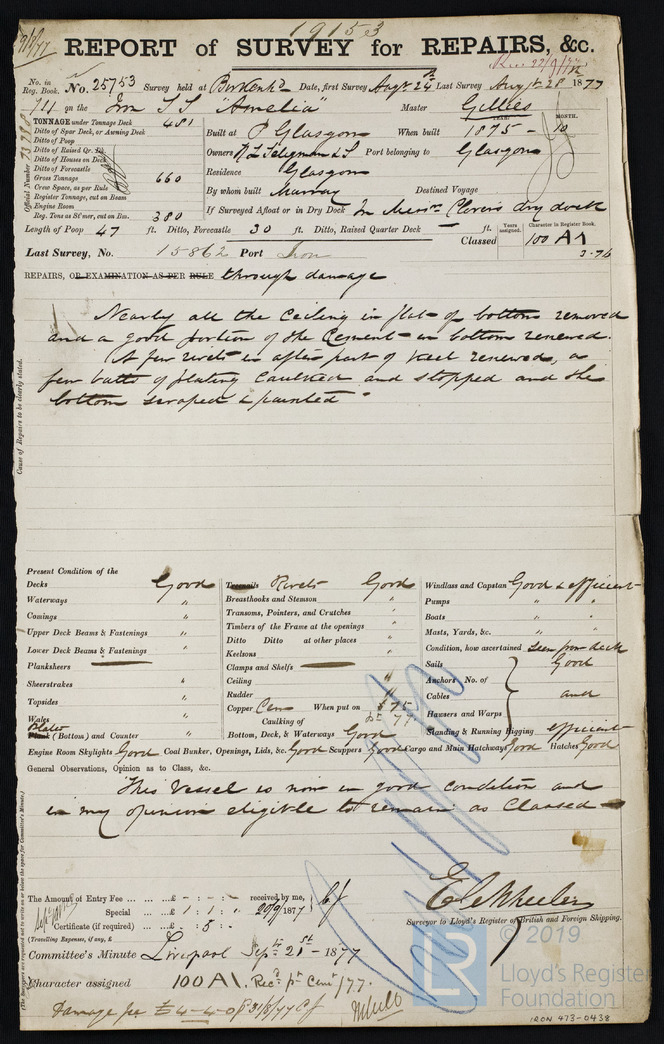 19153
REPORT of SURVEY for REPAIRS, &c.
Rec 22/9/77
No. in Reg. Book.
No. 25753 Survey held at Birkenhd Date, first Survey Augt 24th Last Survey Augt 28th 1877
74 on the Iron SS "Amelia" Master Gillies
TONNAGE under Tonnage Deck 481
Ditto of Spar Deck, or Awning Deck
Ditto of Poop
Ditto of Raised Qr. Dk.
Ditto of Houses on Deck
Ditto of Forecastle
Gross Tonnage 660
Crew Space, as per Rule
Register Tonnage, cut on Beam
Engine Room
Reg. Tons as St'mer, cut on Bm. 380
Official Number
Built at P Glasgow When built YEAR: 1875 - MONTH. 10
Owners Port belonging to Glasgow
Residence Glasgow
By whom built Murray Destined Voyage
If Surveyed Afloat or in Dry Dock In Messrs Clover's dry dock
Length of Poop 47 ft. Ditto, Forecastle 30 ft. Ditto, Raised Quarter Deck — ft.
Classed Years assigned. Character in Register Book. 100 A 1
3.76
Last Survey, No. 15862 Port Iron
REPAIRS, OR EXAMINATION AS PER RULE through damage
Nearly all the Ceiling in flat of bottom removed
and a good portion of the Cement in bottom renewed.
A few rivets in after part of keel renewed, a
few butts of plating Caulked and stopped and the
bottom scraped & painted
Cause of Repairs to be clearly stated.
Present Condition of the
Decks Good
Waterways "
Comings "
Upper Deck Beams & Fastenings "
Lower Deck Beams & Fastenings "
Planksheers —
Sheerstrakes "
Topsides "
Wales "
Plates
Plank (Bottom) and Counter "
Treenails Rivets Good
Breasthooks and Stemson "
Transoms, Pointers, and Crutches "
Timbers of the Frame at the openings "
Ditto Ditto at other places "
Keelsons "
Clamps and Shelfs —
Ceiling "
Rudder "
Copper Cem When put on 8/75
Caulking of pt 77
Bottom, Deck, & Waterways Good
Windlass and Capstan Good & efficient
Pumps " "
Boats " "
Masts, Yards, &c. " "
Condition, how ascertained Seen from deck
Sails Good
Anchors No. of
Cables and
Hawsers and Warps
Standing & Running Rigging efficient
Engine Room Skylights Good Coal Bunker, Openings, Lids, &c. Good Scuppers Good Cargo and Main Hatchways Good Hatches Good
General Observations, Opinion as to Class, &c.
This Vessel is now in good condition and
in my opinion eligible to remain as Classed
The Amount of Entry Fee ... ... £ - : - : - received by me,
Special ... ... £ 1 : 1 : - 20/9/1877
Certificate (if required) ... - : 5 : -
(Travelling Expenses, if any, £
Surveyor to Lloyd's Register of British and Foreign Shipping.
Committee's Minute Liverpool Sepr 21st - 1877
Character assigned 100 A1. Recd pt Cemt /77.
Damage fee £ 4-4-0 pd 31/8/77
© 2019
LR
Lloyd's Register
Foundation
IRON 473-0438